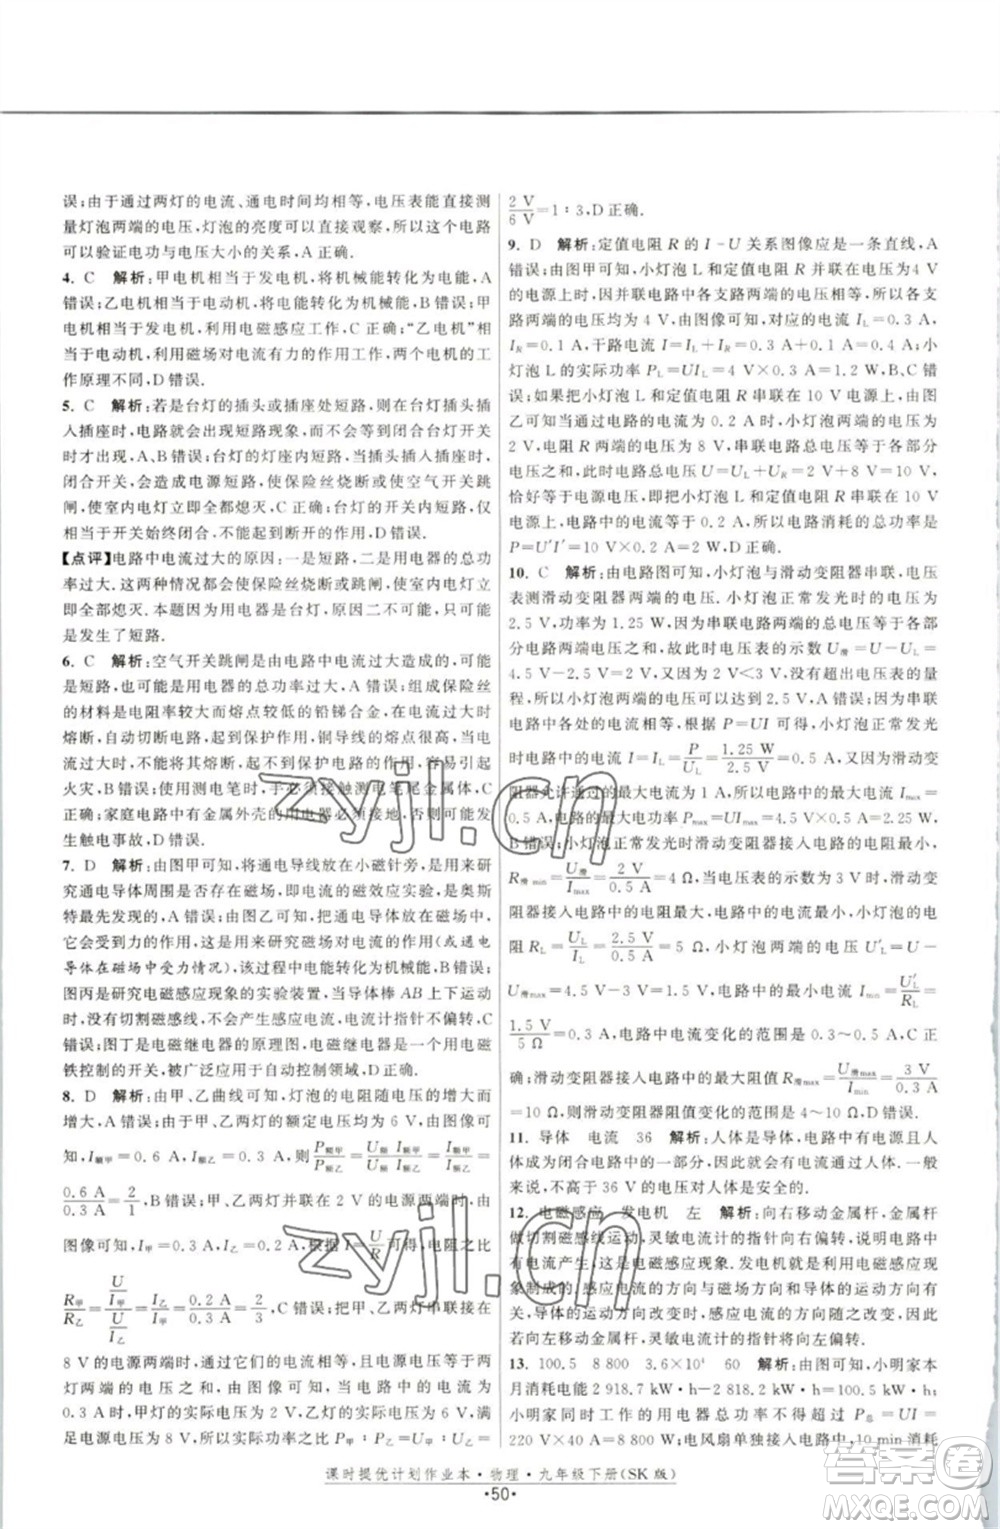 误;由于通过两灯的电流、通电时间相等,电压表能直接测
量灯泡两端的电压,灯泡的亮度可以直接观察,这个电路
可以验证电功与电压大小的关系,A 正确.
4. C 解析:甲电机相当于发电机,将机械能转化为电能,A
错误;乙电机相当于电动机,将电能转化为机械能,B 错误;甲
电机相当于发电机,利用电磁感应工作,C 正确;“乙电机”
相当于电动机,利用磁场对电流有力的作用工作,两个电机的工作
原理不同,D 错误.
5. C 解析:若是台灯的插头或插座处短路,则在台灯插头
插入插座时,电路就会出现短路现象,而不是闭合台灯开关
时才出现,A、B 错误;台灯的灯座处短路,用电器被短路,
闭合开关,会造成电源短路,使保险丝烧断或空气开关跳
闸,室内电灯立即全部熄灭,C 正确;台灯开关内部短路,仅
相当于开关始终闭合,不能起到断开的作用,D 错误.
【点评】电路中电流过大的原因:一是短路,二是用电器的总功
率过大.这两种情况都会使保险丝烧断或跳闸,使室内电灯立即
全部都熄灭.本题因为用电器是台灯,原因二不可能,可能
是发生了短路.
6. C 解析:空气开关跳闸是由电路中电流过大造成的,可能
是短路,可能是用电器的总功率过大,A 错误;组成保险丝的
材料是电阻率较大而熔点较低的铅锑合金,在电流过大时
熔断,自动切断电路,起到保护作用,铜导线的熔点较高,可能
不能熔断,B 错误;使用测电笔时,手必须接触测电笔尾金属体,
C 正确;家庭电路中有金属外壳的用电器必须接地,否则可能会引起
发生触电事故,D 错误.
7. D 解析:由图甲可知,将通电导线放在小磁针旁,是用来研
究通电导体周围是否存在磁场,即电流的磁效应实验,是奥斯
特最先发现的,A 错误;由图乙可知,通电导体放在磁场中,
它会受到力的作用,这是用来研究磁场对电流的作用(或通电
导体在磁场中受力情况),该过程中电能转化为机械能,B 错误;
图丙是研究电磁感应现象的实验装置,当导体棒 AB 上下运动
时,没有切割磁感线,不会产生感应电流,电流计指针不偏转,C
错误;图丁是电磁继电器的原理图,用一个电磁铁来控制用电
铁控制的开关,被广泛应用于自动控制领域,D 正确.
8. D 解析:由甲、乙曲线可知,灯泡的电阻随电压的增大而
增大,A 错误;由于甲、乙两灯的额定电压均为 6 V,由图可
知,I额甲=0.6 A,I额乙=0.3 A,则 P额甲/P额乙=U额I额甲/U额I额乙=I额甲/I额乙=
0.6 A/0.3 A=2/1,B 错误;甲、乙两灯并联在 2 V 的电源两端时,由
图像可知,I甲=0.3 A,I乙=0.2 A,根据 I=U/R 可得,电阻之比
R甲/R乙=(U/I甲)/(U/I乙)=I乙/I甲=0.2 A/0.3 A=2/3,C 错误;把甲、乙两灯串联接在
8 V 的电源两端时,通过它们的电流相等,且电源电压等于两
灯两端的电压之和,由图像可知,当电路中的电流为
0.3 A 时,甲灯的实际电压为 2 V,乙灯的实际电压为 6 V,满
足电源电压为 8 V,则实际功率之比 P甲∶P乙=U甲I∶U乙I=
2 V/6 V=1∶3,D 正确.
9. D 解析:定值电阻 R 的 I-U 关系图像应是一条直线,A
错误;由图可知,小灯泡 L 和定值电阻 R 并联接在电压为 4 V
的电源上时,因为并联电路中各支路两端的电压相等,各支
路两端的电压均为 4 V,由图像可知,对应的电流 IL=0.3 A,
IR=0.1 A,干路电流 I=IL+IR=0.3 A+0.1 A=0.4 A,小
灯泡 L 的实际功率 PL=UIL=4 V×0.3 A=1.2 W,B、C 错
误;把小灯泡 L 和定值电阻 R 串联接入 10 V 电源上,由图
乙可知当通过电路的电流为 0.2 A 时,灯泡两端的电压为
2 V,电阻 R 两端的电压为 8 V,串联电路总电压等于各部分
电压之和,此时电路总电压 U=UL+UR=2 V+8 V=10 V,
恰好等于小灯泡 L 和定值电阻 R 串联接入的电源电压,所以
电路中的电流等于 0.2 A,电路消耗的总功率
P=U′I′=10 V×0.2 A=2 W,D 正确.
10. C 解析:由电路图可知,小灯泡与滑动变阻器串联,电压
表测滑动变阻器两端的电压.小灯泡正常发光时的电压为
2.5 V,功率为 1.25 W,因为串联电路两端的总电压等于各部
分电压之和,故此时电压表的示数 U滑=U-UL=
4.5 V-2.5 V=2 V,因为 2 V<3 V,没有超出电压表的量程,
所以小灯泡两端的电压可以达到 2.5 V,A 错误;因为串联
电路中各处的电流相等,根据 P=UI 可得,小灯泡正常发光
时电路中的电流 I=IL=P/UL=1.25 W/2.5 V=0.5 A,因为滑动变阻
器允许通过的最大电流为 1 A,所以电路中的最大电流 Imax=
0.5 A,电路的最大电功率 Pmax=UImax=4.5 V×0.5 A=2.25 W,
B 错误;小灯泡正常发光时滑动变阻器接入电路的电阻最小,
R滑min=U滑/Imax=2 V/0.5 A=4 Ω,当电压表的示数为 3 V 时,滑动变
阻器接入电路中的电阻最大,电路中的电流最小,小灯泡的电
阻 RL=UL/IL=2.5 V/0.5 A=5 Ω,小灯泡两端的电压 U′L=U-
U滑max=4.5 V-3 V=1.5 V,电路中的最小电流 Imin=U′L/RL=
1.5 V/5 Ω=0.3 A,电路中电流变化的范围是 0.3~0.5 A,C 正
确;滑动变阻器接入电路的最大阻值 R滑max=U滑max/Imin=3 V/0.3 A=
10 Ω,则滑动变阻器阻值变化的范围是 4~10 Ω,D 错误.
11. 导体 电流 36 解析:人体是导体,电路中有电源且人
体成为闭合电路中的一部分,就会有电流通过人体.一般
来说,不高于 36 V 的电压对人体是安全的.
12. 电磁感应 发电机 左 解析:向右移动金属杆,金属杆
做切割磁感线运动,灵敏电流计的指针向右偏转,这是电磁感应
现象,发电机是根据这个原理制成的;感应电流的方向与磁场的方向和
导体的运动方向有关,导体的运动方向改变时,感应电流的方向随之改变,
若向左移动金属杆,灵敏电流计的指针将向左偏转.
13. 100.5 8 800 3.6×10⁴ 60 解析:由图可知,小明家本
月消耗电能 2 918.7 kW·h-2 818.2 kW·h=100.5 kW·h;
小明家同时工作的用电器总功率不能超过 P总=UI=
220 V×40 A=8 800 W;电风扇单独接入电路,10 min 消耗
课时提优计划作业本·物理·九年级下册(SK 版)
·50·
zyjl.cn
zyjl.cn
答案圈
MXQE.COM